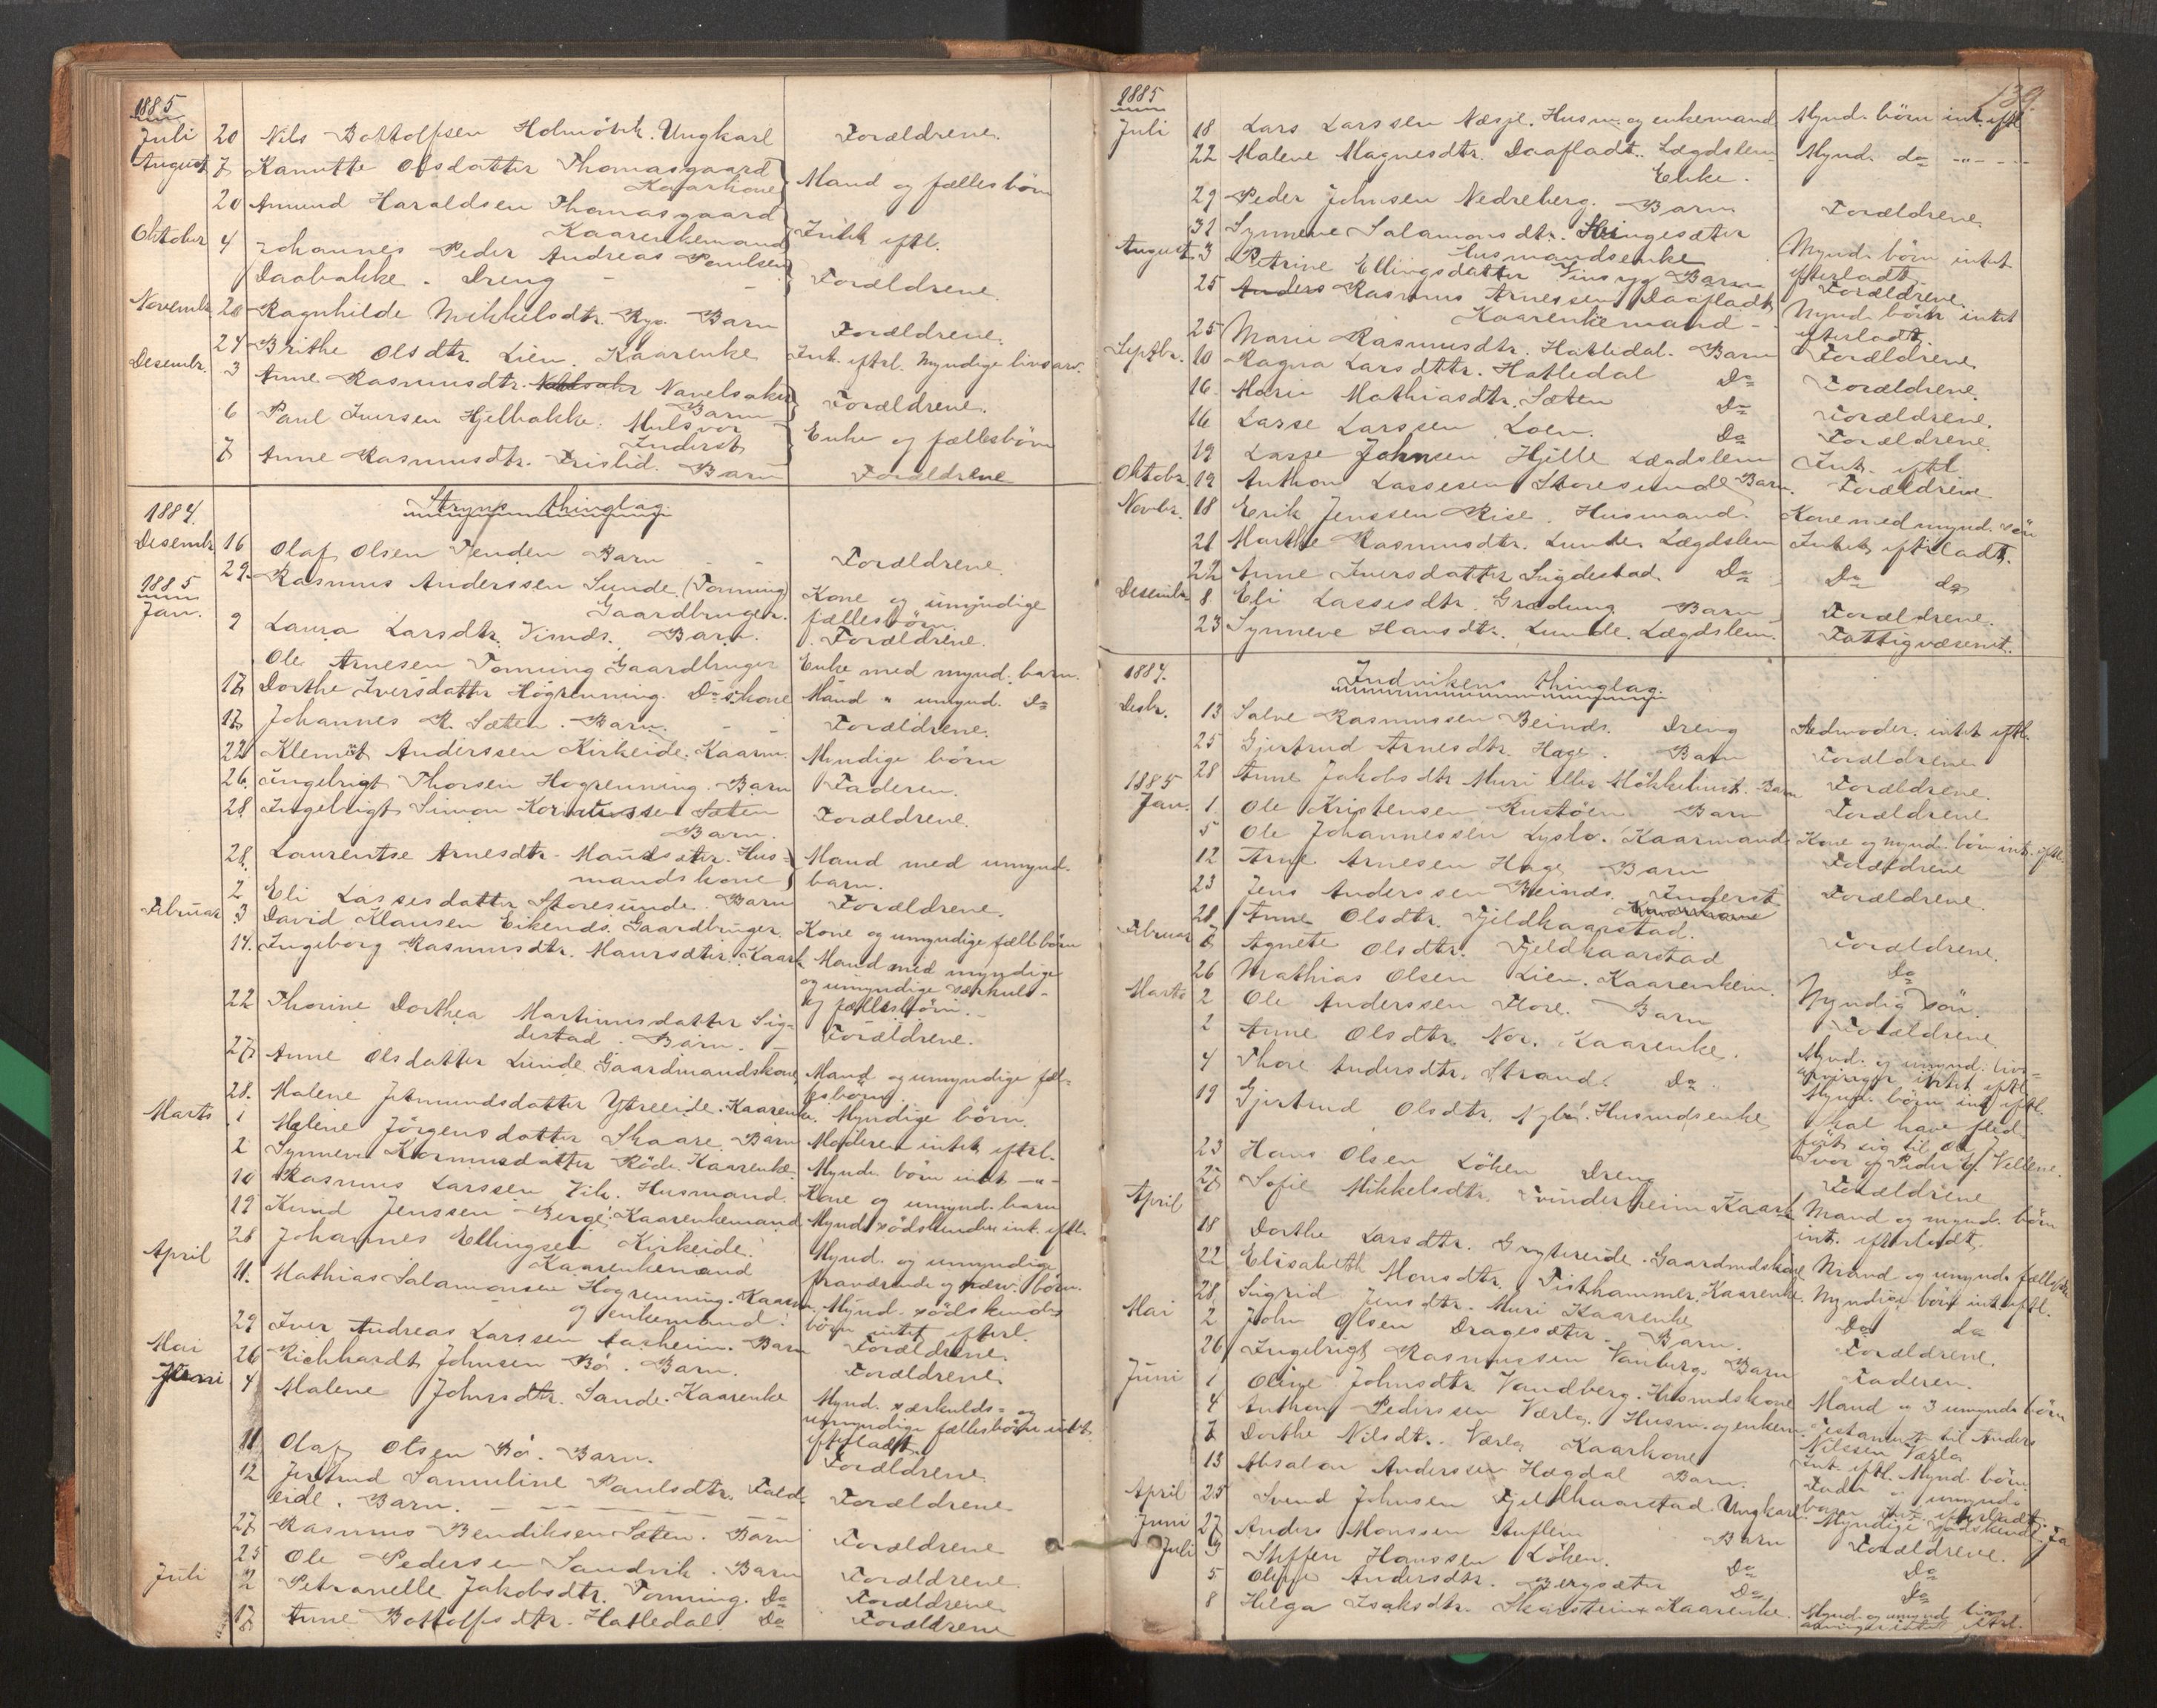 1885
Juli 20 Nils Bottolfsen Holmövik. Ungkarl Forældrene.
August 7 Kanutte Olsdatter Thomasgaard
Kaarkone Mand og fællesbörn
20 Amund Haraldsen Thomasgaard
Kaarenkemand Intet eftl.
Oktober 4 Johannes Peder Andreas Paulsen
Daabakke. Dreng - - Forældrene.
Novembr. 20 Ragnhilde Mikkelsdtr. Ryg. Barn Forældrene.
24 Brithe Olsdtr. Lien Kaarenke Int. eftrl. Myndige livsarv.
Desembr. 3 Anne Rasmusdtr. Navelsaker
Barn Forældrene.
6 Paul Iversen Hjelbakke. Mulsvor
Inderst Enke og fællesbörn
7 Anne Rasmusdtr. Frislid. Barn Forældrene
Stryns thinglag.
1884.
Desembr. 16 Olaf Olsen Tenden Barn - - Forældrene.
29. Rasmus Anderssen Sunde (Tonning)
Gaardbruger. Kone og umyndige
fællesbörn.
1885
Jan. 9 Laura Larsdtr. Vinds. Barn. Forældrene.
Ole Arnesen Tonning Gaardbruger Enke med mynd. barn.
17 Dorthe Iversdatter Högrenning. Do.skone Mand " umynd. Do
17 Johannes R. Sæten. Barn. - - Forældrene.
22 Klemet Anderssen Kirkeide. Kaarm. Myndige börn
26. Ingebrigt Thorsen Hogrenning. Barn Faderen.
28 Ingebrigt Simon Korneliussen Sæten
Barn. Forældrene.
28. Laurentse Arnesdtr. Maurset. Hus-
mandskone Mand med umynd.
barn.
2 Eli Lassesdatter Storesunde. Barn Forældrene.
Februar 3 David Klausen Eikenes. Gaardbruger. Kone og umyndige fællbörn
14. Ingeborg Rasmusdtr. Maursæter. Kaark. Mand med myndige
og umyndige særkuls-
og fællesbörn. -
22 Thorine Dorthea Martinusdatter Sig-
destad. Barn. - Forældrene.
27 Anne Olsdatter Lunde Gaardmandskone Mand og umyndige fæl-
lesbörn.
28. Malene Jetmundsdatter Ytreeide. Kaarenke. Myndige börn.
Marts 1 Malene Jörgensdatter Skaare Barn Moderen intet eftrl.
2 Synneve Rasmusdatter Röde. Kaarenke Mynd. börn intet —"—
10 Rasmus Larssen Vik. Husmand. Kone og umynd. barn
19 Knud Jenssen Berge. Kaarenkemand Mynd. södskender int. eftl.
28 Johannes Ellingsen Kirkeide.
Kaarenkemand Mynd. og umyndige
fraværende og nærv. börn.
April 11. Mathias Salamonsen Hogrenning. Kaarm.
og enkemand. Mynd. södskendes
börn intet efterl.
29 Iver Andreas Larssen Aasheim. Barn Forældrene.
Mai 26 Richhardt Johnsen Bö. Barn. Forældrene
Juni 4 Malene Johnsdtr. Sande. Kaarenke Mynd. særkulds- og
umyndige fællesbörn intet
efterladt.
11 Olaf Olsen Bö. Barn. Forældrene
12 Jertrud Samuline Paulsdtr. Fald-
eide. Barn. - - - - - Forældrene
27 Rasmus Bendiksen Sæten. Barn Forældrene
25 Ole Pedersen Sandvik. Barn Forældrene
Juli 2 Petronelle Jakobsdtr. Tonning. Do Forældrene
17 Anne Bottolfsdtr. Hatledal. Do Forældrene
139.
1885
Juli 18 Lars Larssen Næsje. Husm. og enkemand Mynd. börn int. eftl.
22 Malene Magnesdtr. Daafladt. Lægdslem
Enke. Mynd. do —"— -
29 Peder Johnsen Nedreberg. Barn Forældrene.
31 Synneve Salamonsdtr. Ringesæter
Husmandsenke Mynd. börn intet
efterladt.
August 3 Petrine Ellingsdatter Vinsryg Barn Forældrene.
25 Anders Rasmus Arnessen Daafladt
Kaarenkemand - - Mynd. börn intet
efterladt.
25 Marie Rasmusdtr. Hatledal. Barn Forældrene
Septbr. 10 Ragna Larsdttr. Hatledal Do Forældrene.
16 Marie Mathiasdtr. Sæten Do Forældrene.
16 Lasse Larssen Loen. Do Forældrene.
19 Lasse Johnsen Hjelle Lægdslem Int. eftl.
Oktobr. 19 Anthon Lassesen Storesunde Barn. Forældrene
Novbr. 18 Erik Jenssen Rise. Husmand. Kone med mynd. sön
21 Marthe Rasmusdtr. Lunde. Lægdslem Intet efterladt.
22 Anne Iversdatter Sigdestad. Do Do do
Desembr. 8 Eli Lassesdtr. Grødung Barn Forældrene.
23 Synneve Hansdtr. Lunde. Lægdslem. Fattigvæsenet.
Indvikens thinglag.
1884.
Desbr. 13 Salve Rasmussen Beinds. Dreng Stedmoder. intet eftl.
25 Gjertrud Arnesdtr. Hage. Barn Forældrene
28 Anne Jakobsdtr. Muri eller Mökkelhust. Barn Forældrene.
1885
Jan. 1 Ole Kristensen Rustöen Barn Forældrene
5 Ole Johannessen Lyslo. Kaarmand Kone og mynd. börn int. eftl.
12 Arne Arnesen Hage Barn Forældrene
23 Jens Anderssen Beinds. Inderst Forældrene.
28 Anne Olsdtr. Fjeldkaarstad.
Februar 6 Agnete Olsdtr. Fjeldkaarstad Forældrene.
26 Mathias Olsen Lien. Kaarenkem. Do
Marts 2 Ole Anderssen Flore. Barn Myndig sön.
2 Anne Olsdtr. Nor. Kaarenke. Forældrene.
4 Thore Andersdtr. Strand. Do Mynd. og umynd. livs-
arvinger intet eftl.
19 Gjertrud Olsdtr. Nylö. Husmdsenke Mynd. börn int. eftl.
Skal have fled-
fört sig til
Svor og Peder Vellene.
23 Hans Olsen Löken Dreng Forældrene
27 Sofie Mikkelsdtr. Tvinderheim Kaark. Mand og mynd. börn
int. efterladt.
April 18 Dorthe Larsdtr. Grytereide. Gaardmdskone Mand og umynd. fællesbörn
22 Elisabeth Monsdtr. Fisthammer. Kaarenke. Myndige börn int. eftl.
28 Sigrid Jensdtr. Muri Kaarenke Do do
Mai 2 John Olsen Dragesæter. Barn. Forældrene.
26 Ingebrigt Rasmussen Vanberg. Barn Faderen.
Juni 1 Oline Johnsdtr. Vandberg. Husmdskone Mand " 3 umynd. börn
4 Anthon Pederssen Værlo. Husm. og enkem. Testament til Anders
Nilssen Værlo
7 Dorthe Nilsdt. Værlo Kaarkone Int. eftl. Mynd. börn
13 Absalon Anderssen Hægdal Barn. Fader
April 25 Svend Johnsen Fjeldkaarstad Ungkarl Myndige södskend.
Juni 27 Anders Monssen Auflem Barn Forældrene.
Juli 9 Steffen Hanssen Löken. Do Do
5 Oluffe Andersdtr. Bergsæter Do Do
8 Helga Isaksdtr. Skarstein. Kaarenke. Mynd. og umynd. livs
arvinger intet eftrl.